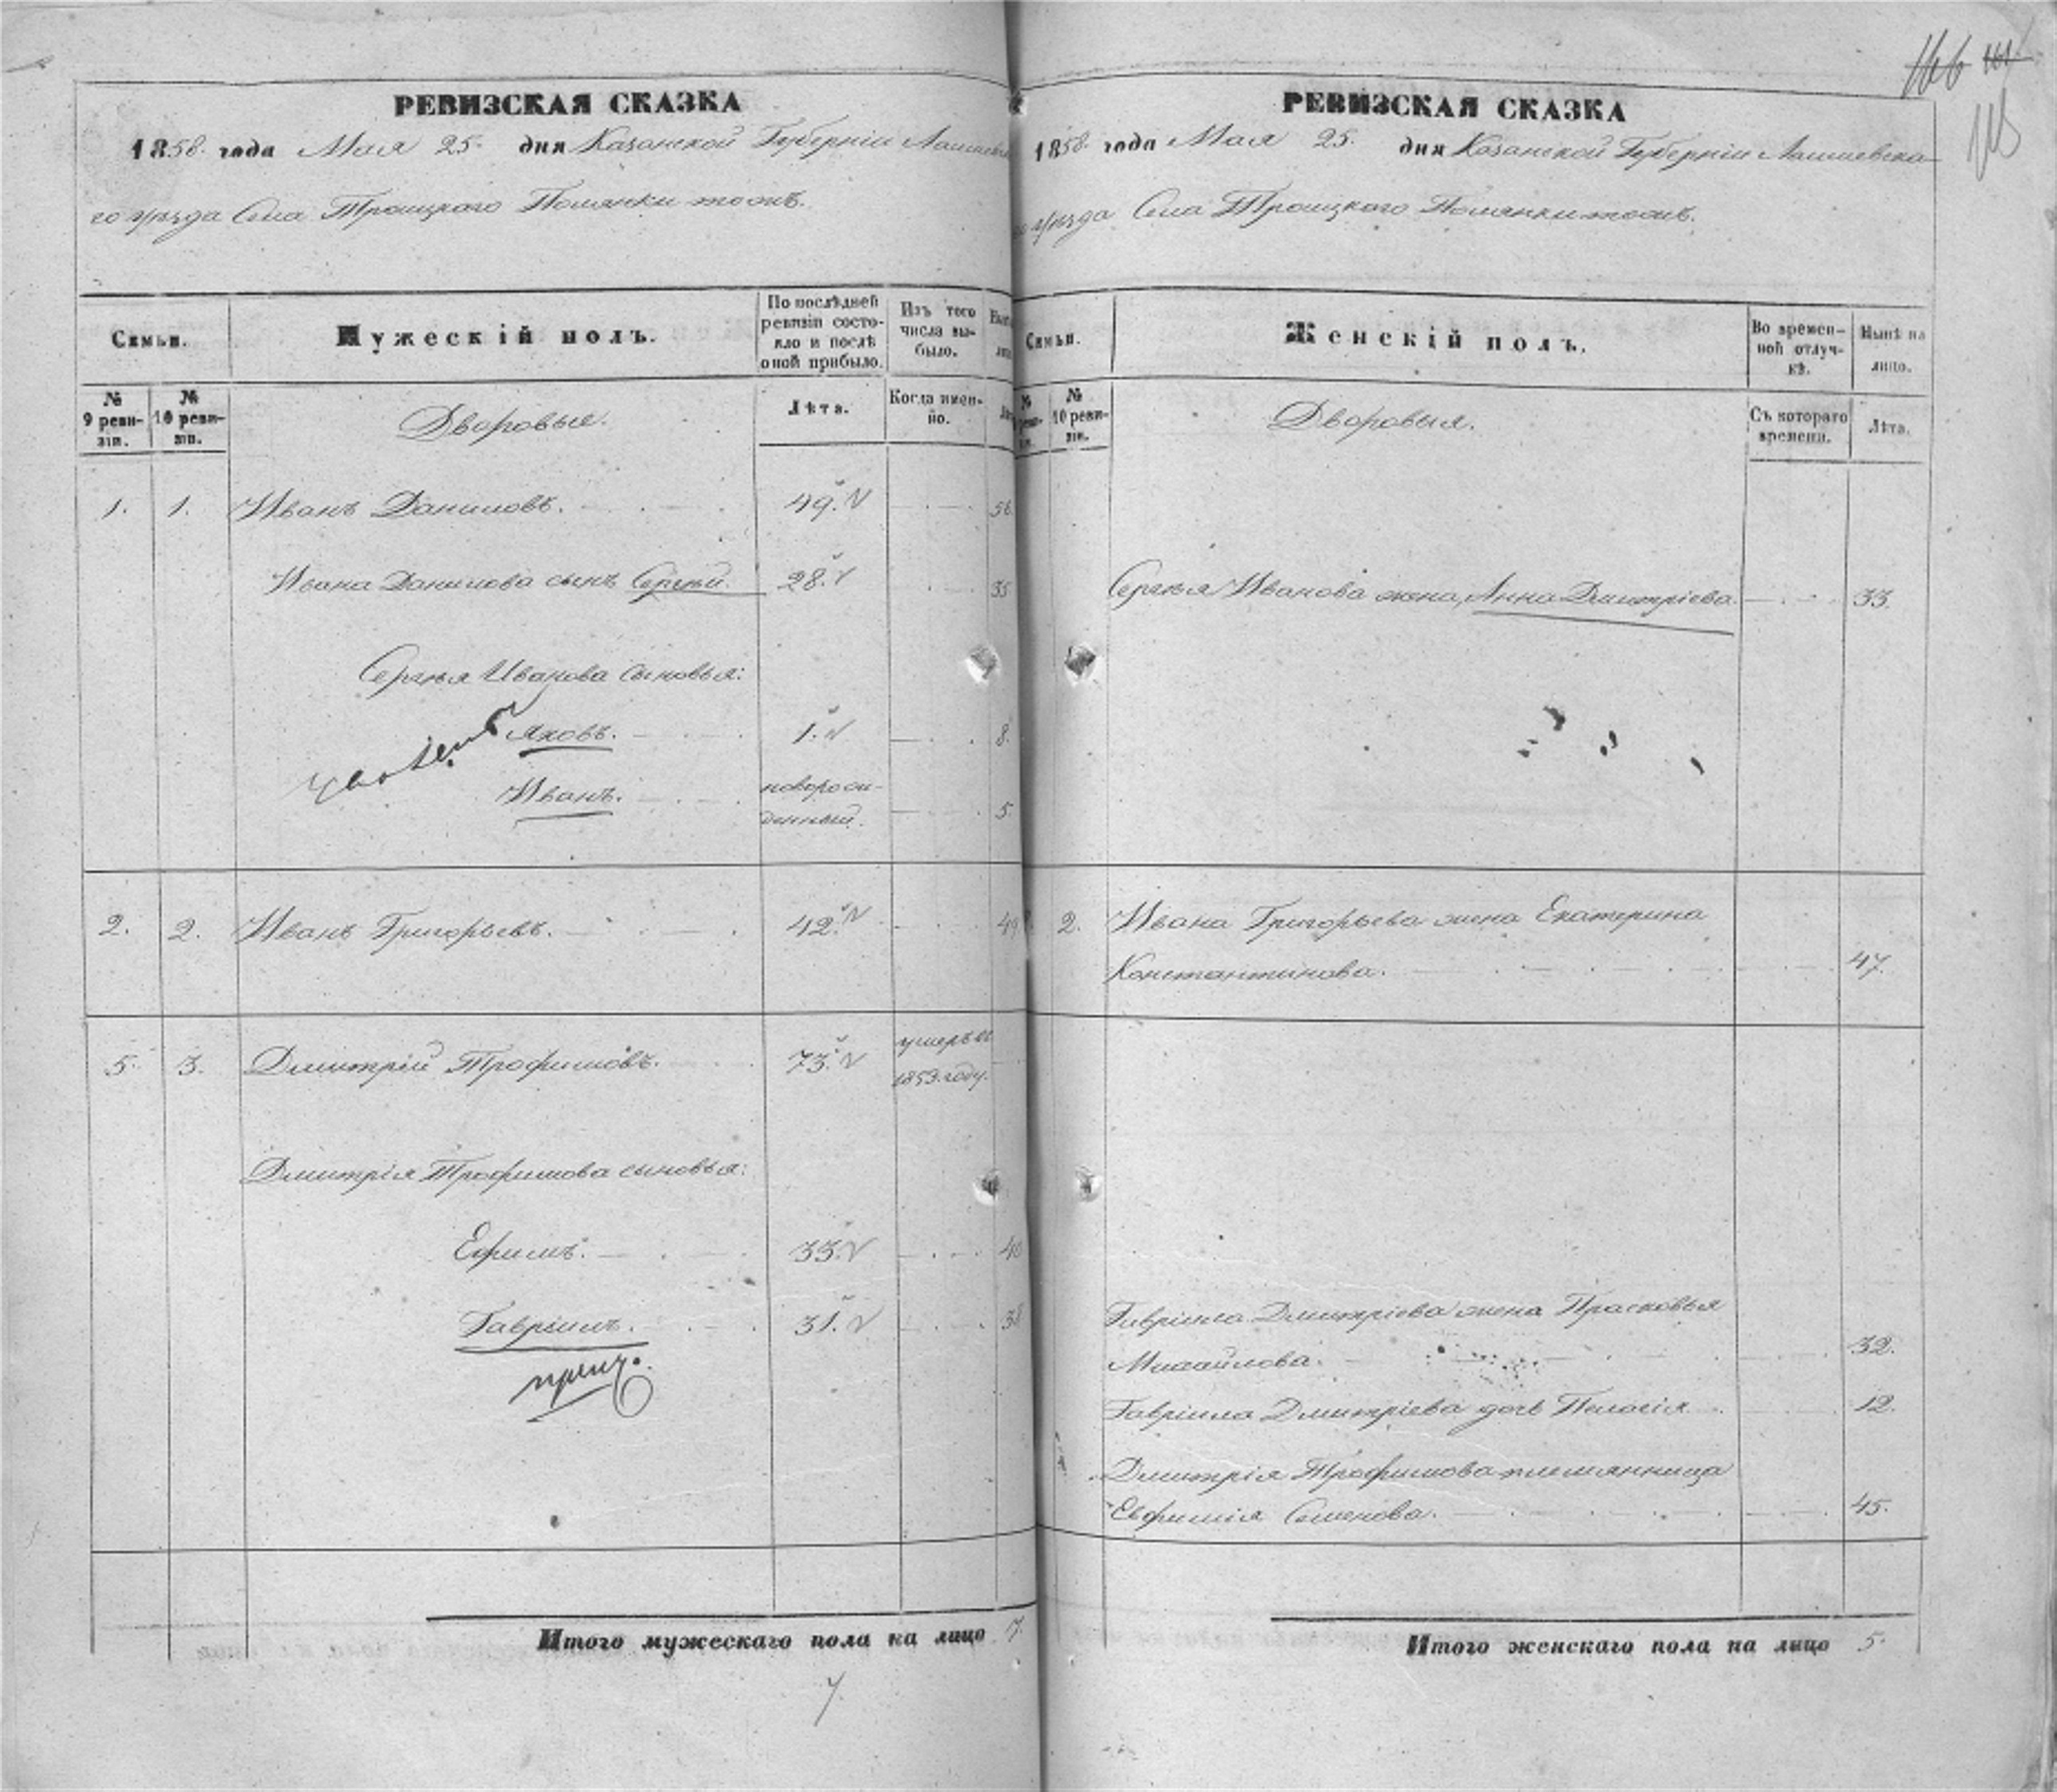 РЕВИЗСКАЯ СКАЗКА
1858. года Мая 25. дня Казанской Губерніи Лаишевска
го уѣзда Села Троицкаго Полянки тожъ.
Семьи.
Мужескій полъ.
По послѣдней
ревизіи состо-
яло и послѣ
оной прибыло.
Изъ того
числа вы-
было.
№
9 реви-
зіи.
№
10 реви-
зіи.
Дворовые.
Лѣта.
Когда имен-
но.
1. 1. Иванъ Даниловъ. 49. 56.
Ивана Данилова сынъ Сергѣй. 28. 35
Сергѣя Иванова сыновья:
Яковъ. 1. 8.
Иванъ. новорож-
денный. 5.
2. 2. Иванъ Григорьевъ. 42. 49
5. 3. Дмитрій Трофимовъ. 73. умеръ въ
1853. году.
Дмитрія Трофимова сыновья:
Ефимъ. 33. 40
Гавріилъ. 31. 38
Итого мужескаго пола на лицо 7.
7.
166
РЕВИЗСКАЯ СКАЗКА
1858. года Мая 25. дня Казанской Губерніи Лаишевска
го уѣзда Села Троицкаго Полянки тожъ.
Семьи.
Женскій полъ.
Во времен-
ной отлуч-
кѣ.
Нынѣ на
лицо.
№
10 реви-
зіи.
Дворовыя.
Съ котораго
времени.
Лѣта.
Сергѣя Иванова жена, Анна Дмитріева. 33.
2. Ивана Григорьева жена Екатерина
Константинова. 47.
Гавріила Дмитріева жена Прасковья
Михайлова. 32.
Гавріила Дмитріева дочь Пелагія. 12.
Дмитрія Трофимова племянница
Евфимія Семенова. 45.
Итого женскаго пола на лицо 5.